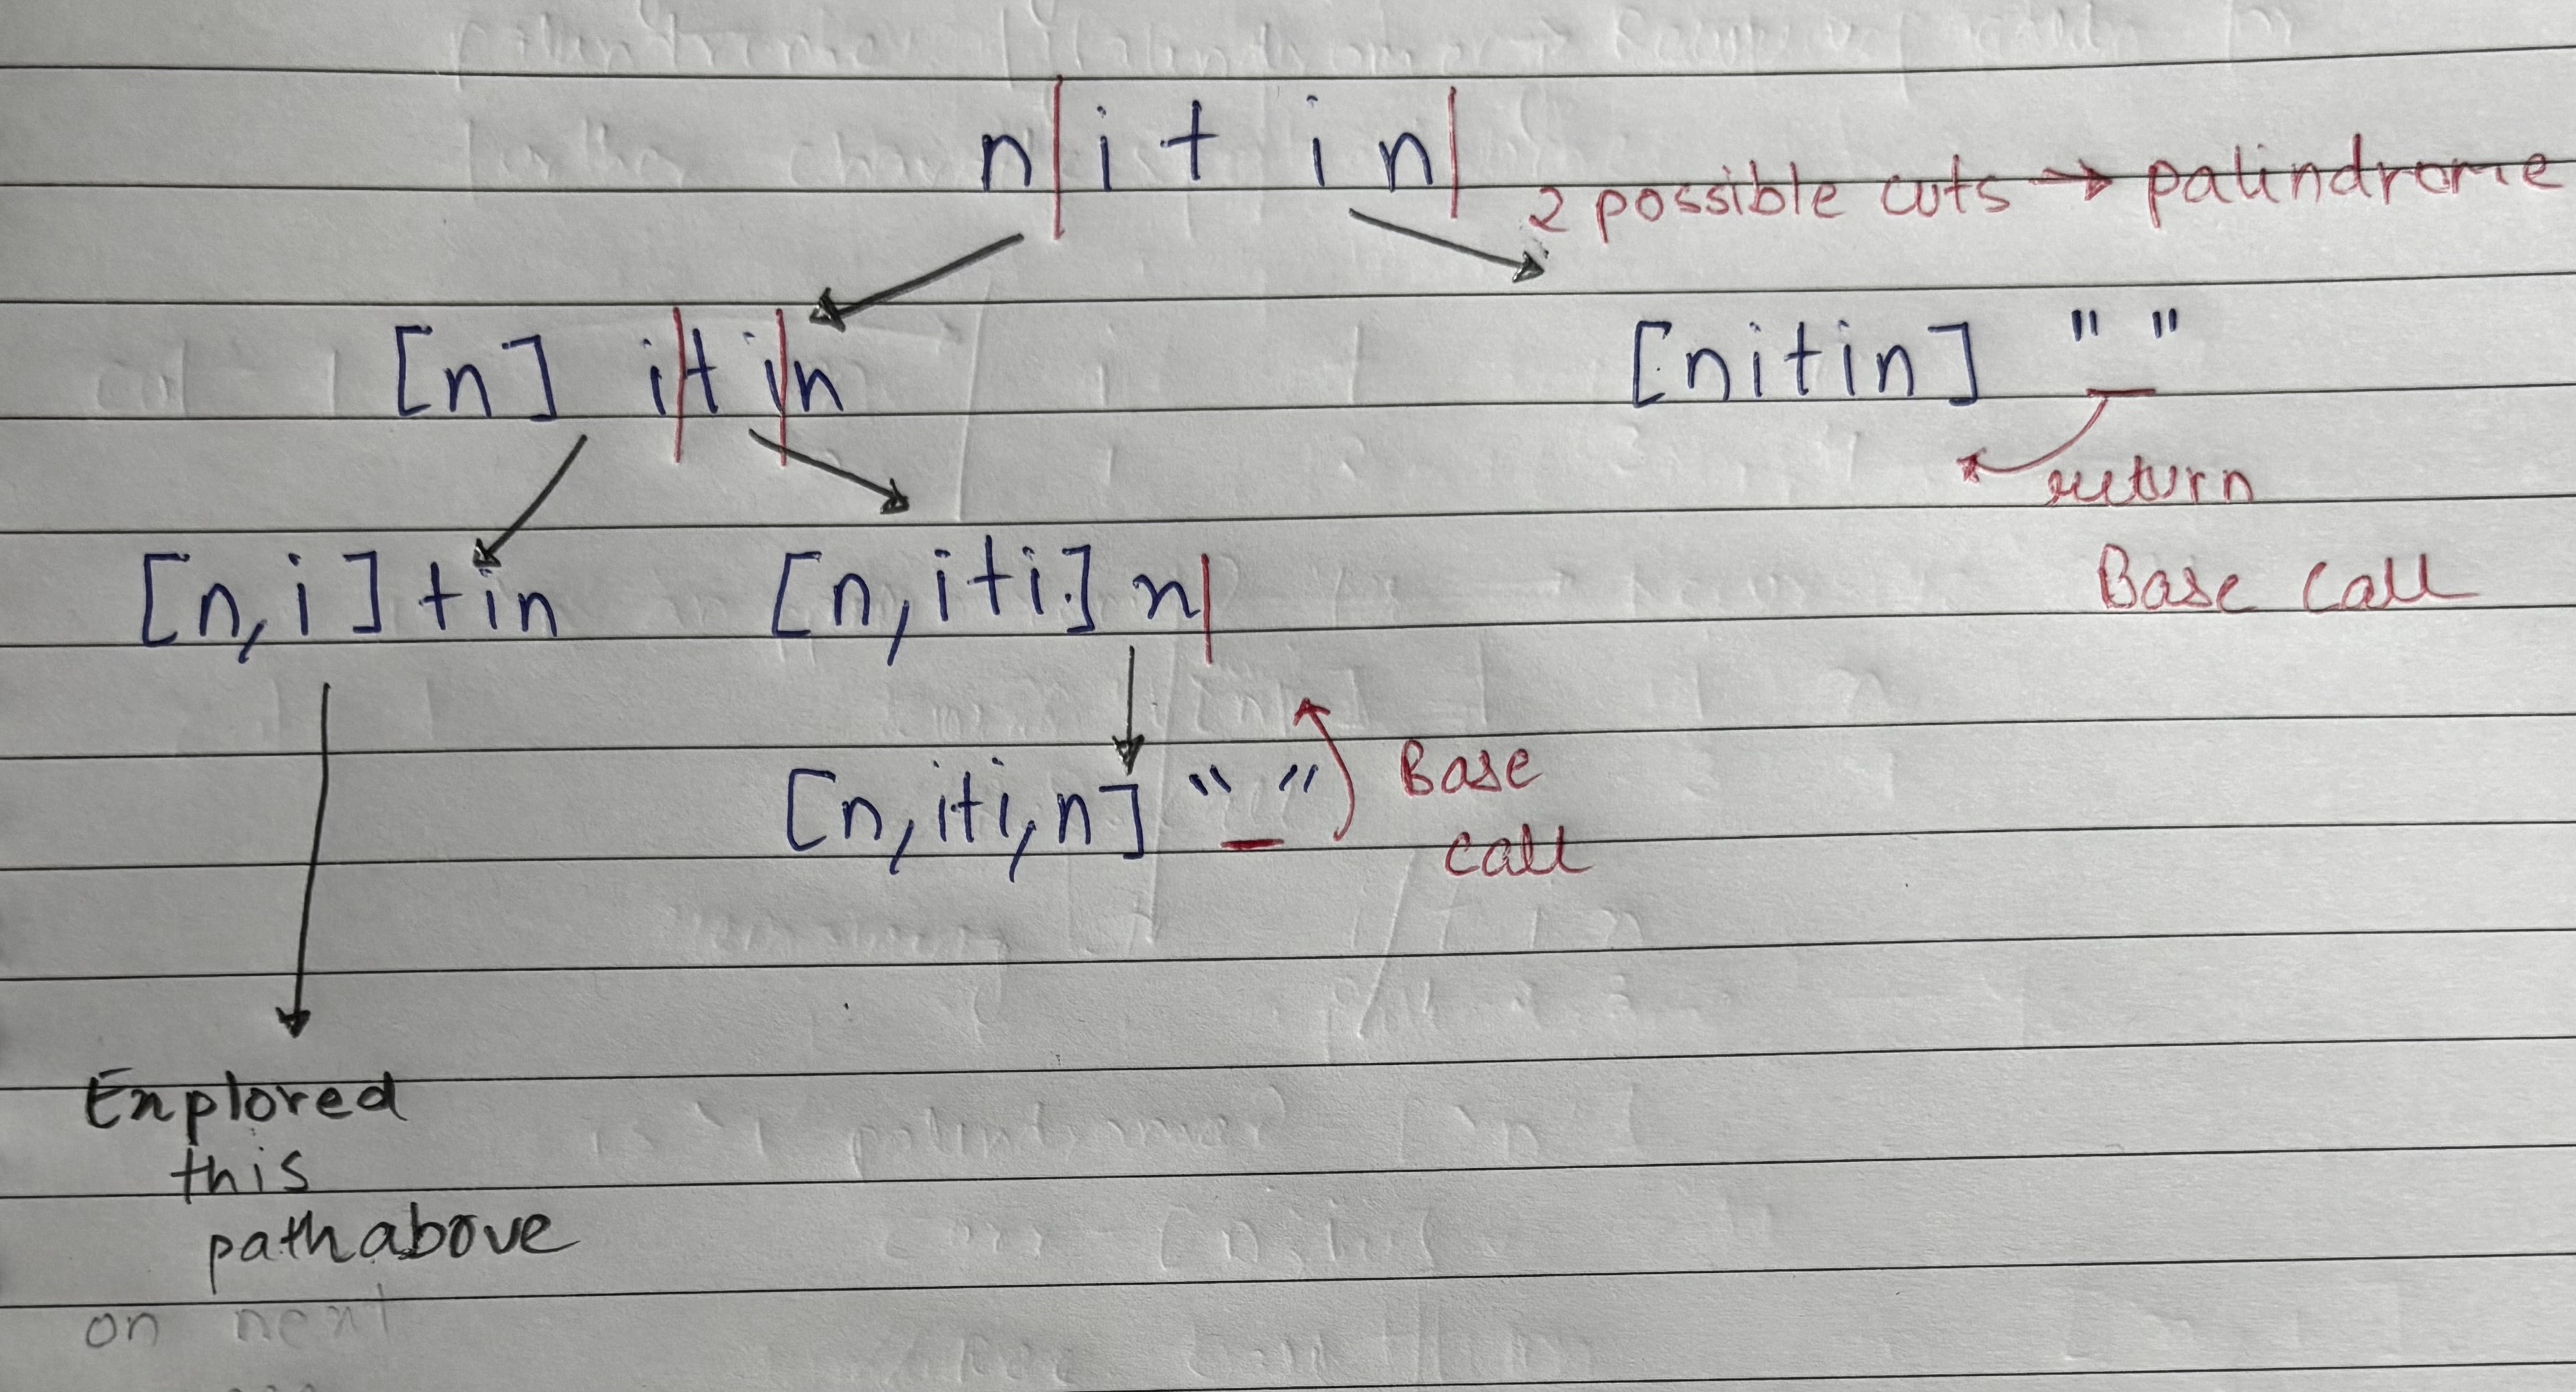 n|i t i n|
2 possible cuts → palindrome
[n] i|t i|n
[nitin] " "
return
Base call
[n,i] tin
[n,iti] n|
[n,iti,n] " "
Base
call
Explored
this
path above
on next